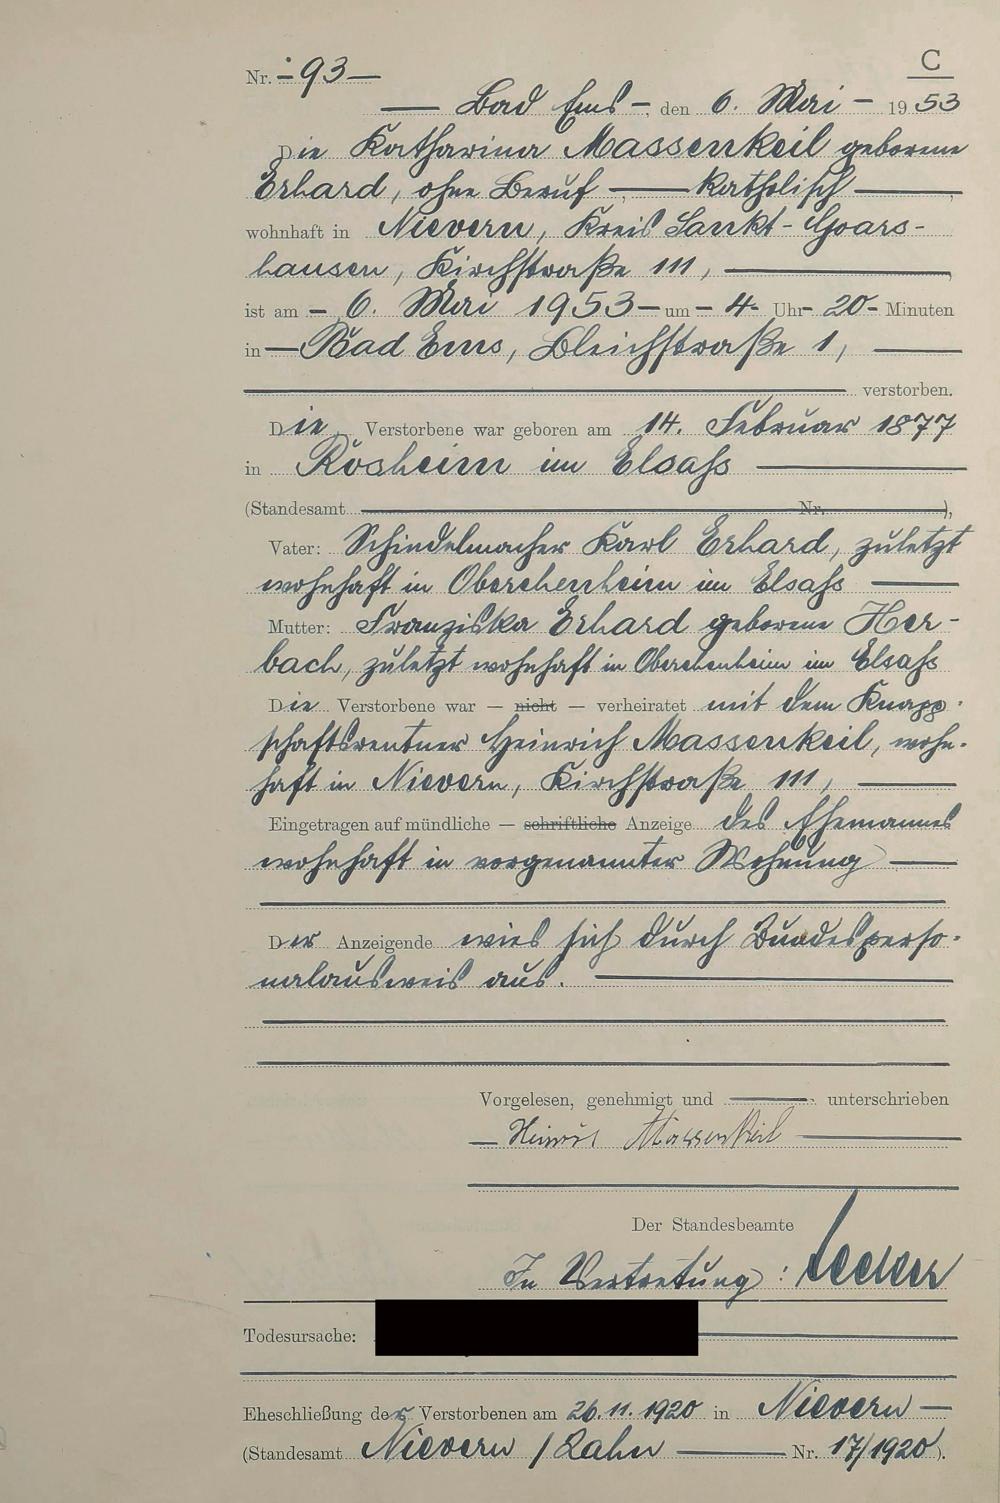 C
Nr. 93
Bad Ems, den 6. Mai 1953
Die Katharina Massenkeil geborene
Erhard, ohne Beruf — katholisch —,
wohnhaft in Nievern, Kreis Sankt-Goars-
hausen, Kirchstraße 111,
ist am 6. Mai 1953 um 4 Uhr 20 Minuten
in Bad Ems, Bleichstraße 1,
verstorben.
Die Verstorbene war geboren am 14. Februar 1877
in Rosheim im Elsaß
(Standesamt Nr. ),
Vater: Schindelmacher Karl Erhard, zuletzt
wohnhaft in Oberehenheim im Elsaß
Mutter: Franziska Erhard geborene Her-
bach, zuletzt wohnhaft in Oberehenheim im Elsaß
Die Verstorbene war — nicht — verheiratet mit dem Knapp-
schaftsrentner Heinrich Massenkeil, wohn-
haft in Nievern, Kirchstraße 111,
Eingetragen auf mündliche — schriftliche Anzeige des Ehemannes
wohnhaft in vorgenannter Wohnung
Der Anzeigende wies sich durch Bundesperso-
nalausweis aus.
Vorgelesen, genehmigt und unterschrieben
Heinrich Massenkeil
Der Standesbeamte
In Vertretung:
Todesursache:
Eheschließung der Verstorbenen am 26.11.1920 in Nievern
(Standesamt Nievern / Lahn Nr. 17/1920).